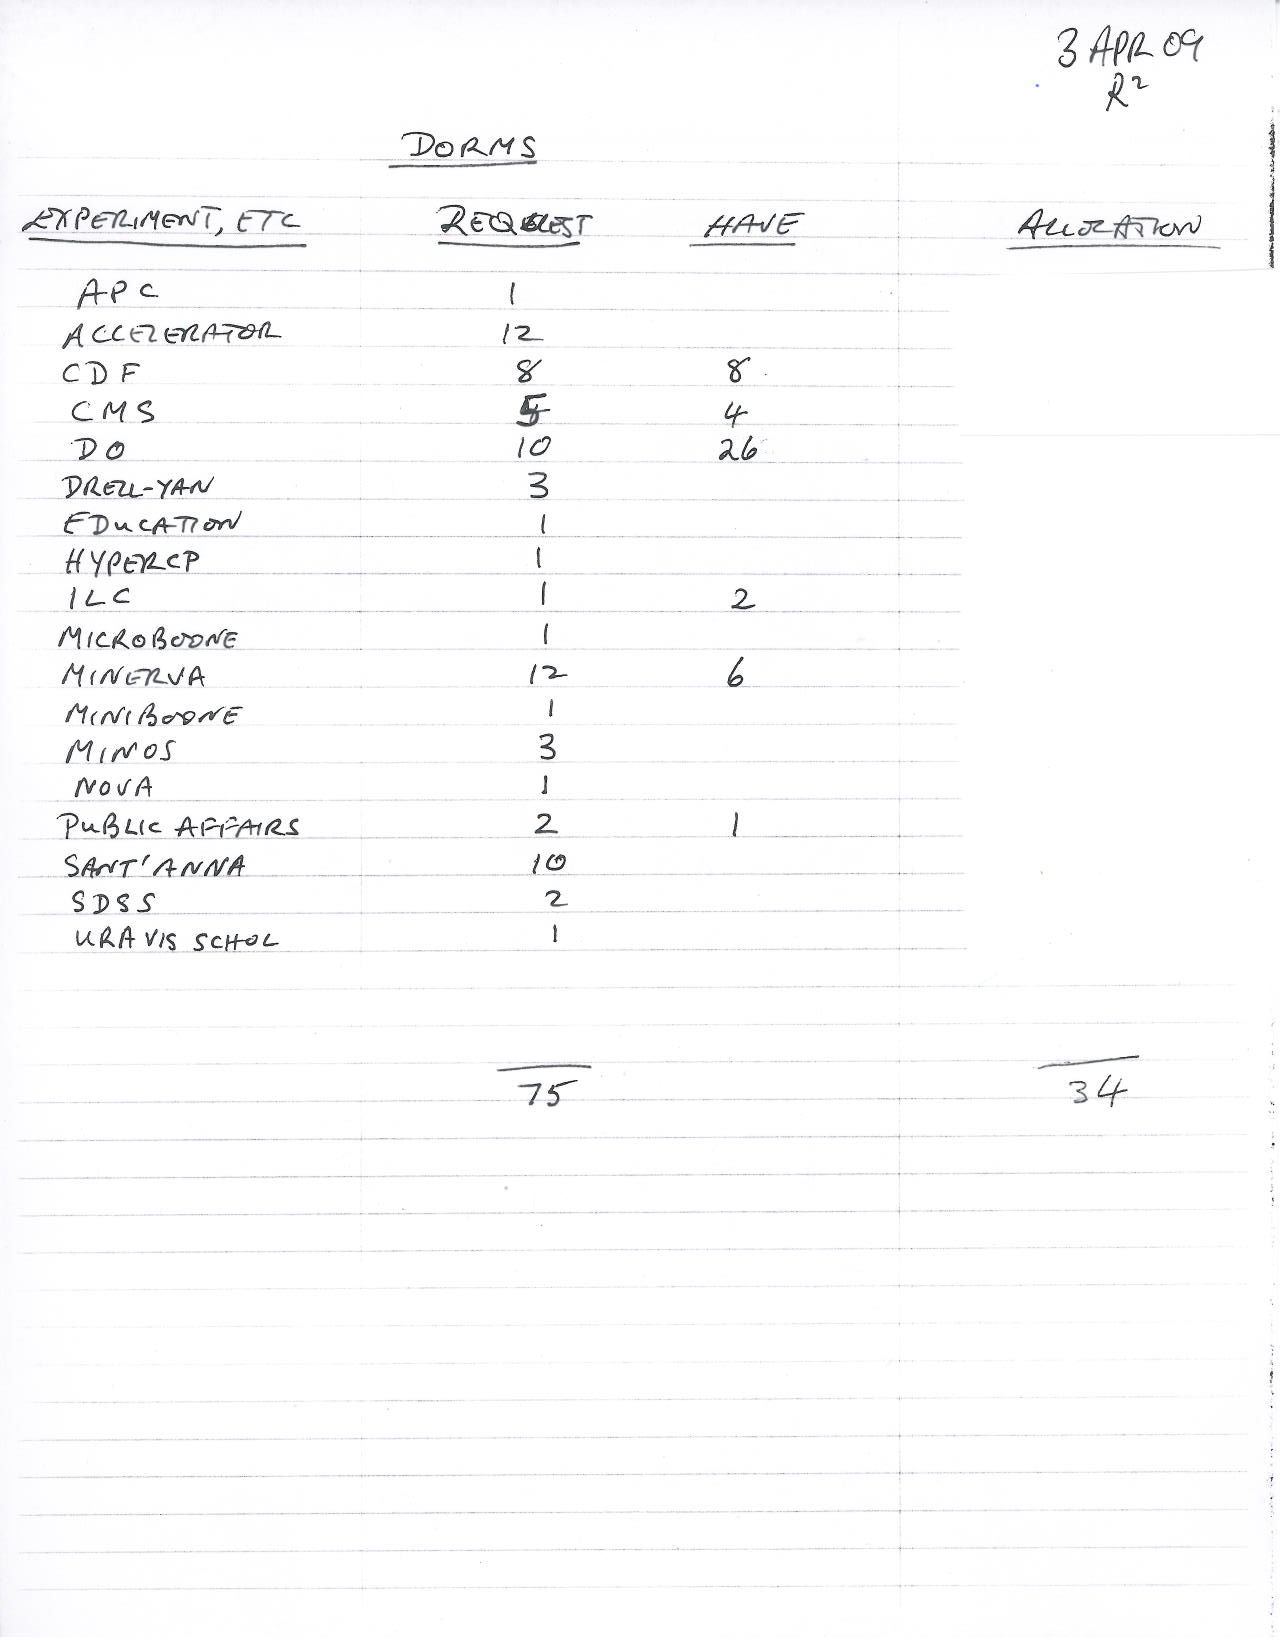 3 APR 09
R2
DORMS
EXPERIMENT, ETC REQUEST HAVE ALLOCATION
APC 1
ACCELERATOR 12
CDF 8 8
CMS 5 4
DO 10 26
DRELL-YAN 3
EDUCATION 1
HYPERCP 1
ILC 1 2
MICROBOONE 1
MINERVA 12 6
MINIBOONE 1
MINOS 3
NOVA 1
PUBLIC AFFAIRS 2 1
SANT'ANNA 10
SDSS 2
URA VIS SCHOL 1
75 34